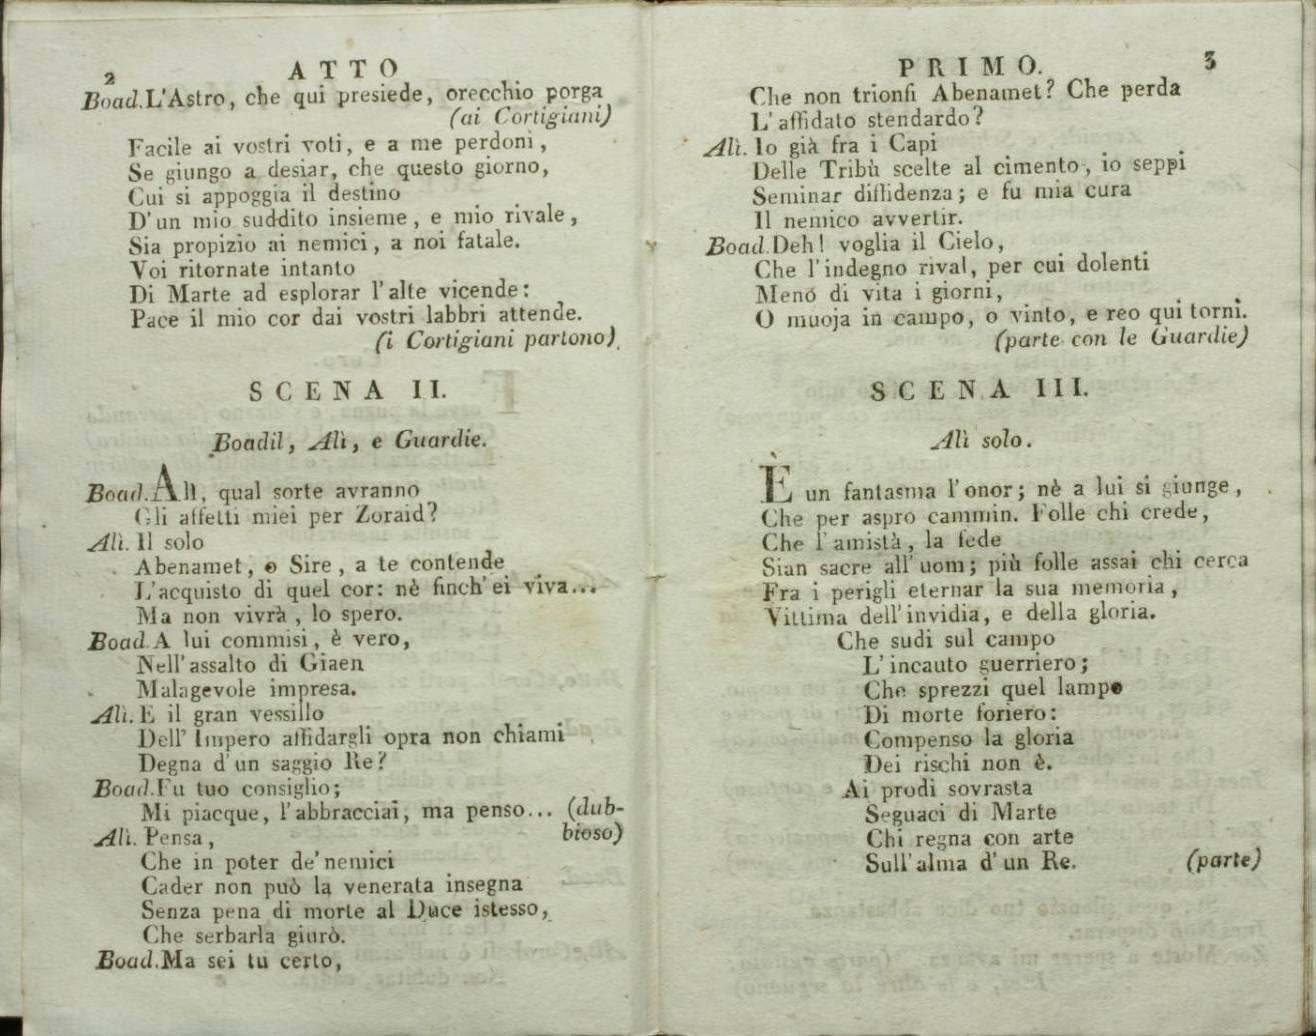 2
ATTO
Boad. L'Astro, che qui presiede, orecchio porga
(ai Cortigiani)
Facile ai vostri voti, e a me perdoni,
Se giungo a desiar, che questo giorno,
Cui si appoggia il destino
D'un mio suddito insieme, e mio rivale,
Sia propizio ai nemici, a noi fatale.
Voi ritornate intanto
Di Marte ad esplorar l'alte vicende:
Pace il mio cor dai vostri labbri attende.
(i Cortigiani partono).
SCENA II.
Boadil, Alì, e Guardie.
Boad. Alì, qual sorte avranno
Gli affetti miei per Zoraid?
Alì. Il solo
Abenamet, o Sire, a te contende
L'acquisto di quel cor: nè finch'ei viva...
Ma non vivrà, lo spero.
Boad. A lui commisi, è vero,
Nell'assalto di Giaen
Malagevole impresa.
Alì. E il gran vessillo
Dell'Impero affidargli opra non chiami
Degna d'un saggio Re?
Boad. Fu tuo consiglio;
Mi piacque, l'abbracciai, ma penso... (dub-
Alì. Pensa, bioso)
Che in poter de'nemici
Cader non può la venerata insegna
Senza pena di morte al Duce istesso,
Che serbarla giurò.
Boad. Ma sei tu certo,
PRIMO.
3
Che non trionfi Abenamet? Che perda
L'affidato stendardo?
Alì. Io già fra i Capi
Delle Tribù scelte al cimento, io seppi
Seminar diffidenza; e fu mia cura
Il nemico avvertir.
Boad. Deh! voglia il Cielo,
Che l'indegno rival, per cui dolenti
Menò di vita i giorni,
O muoja in campo, o vinto, e reo qui torni.
(parte con le Guardie)
SCENA III.
Alì solo.
È un fantasma l'onor; nè a lui si giunge,
Che per aspro cammin. Folle chi crede,
Che l'amistà, la fede
Sian sacre all'uom; più folle assai chi cerca
Fra i perigli eternar la sua memoria,
Vittima dell'invidia, e della gloria.
Che sudi sul campo
L'incauto guerriero;
Che sprezzi quel lampo
Di morte foriero:
Compenso la gloria
Dei rischi non è.
Ai prodi sovrasta
Seguaci di Marte
Chi regna con arte
Sull'alma d'un Re. (parte)